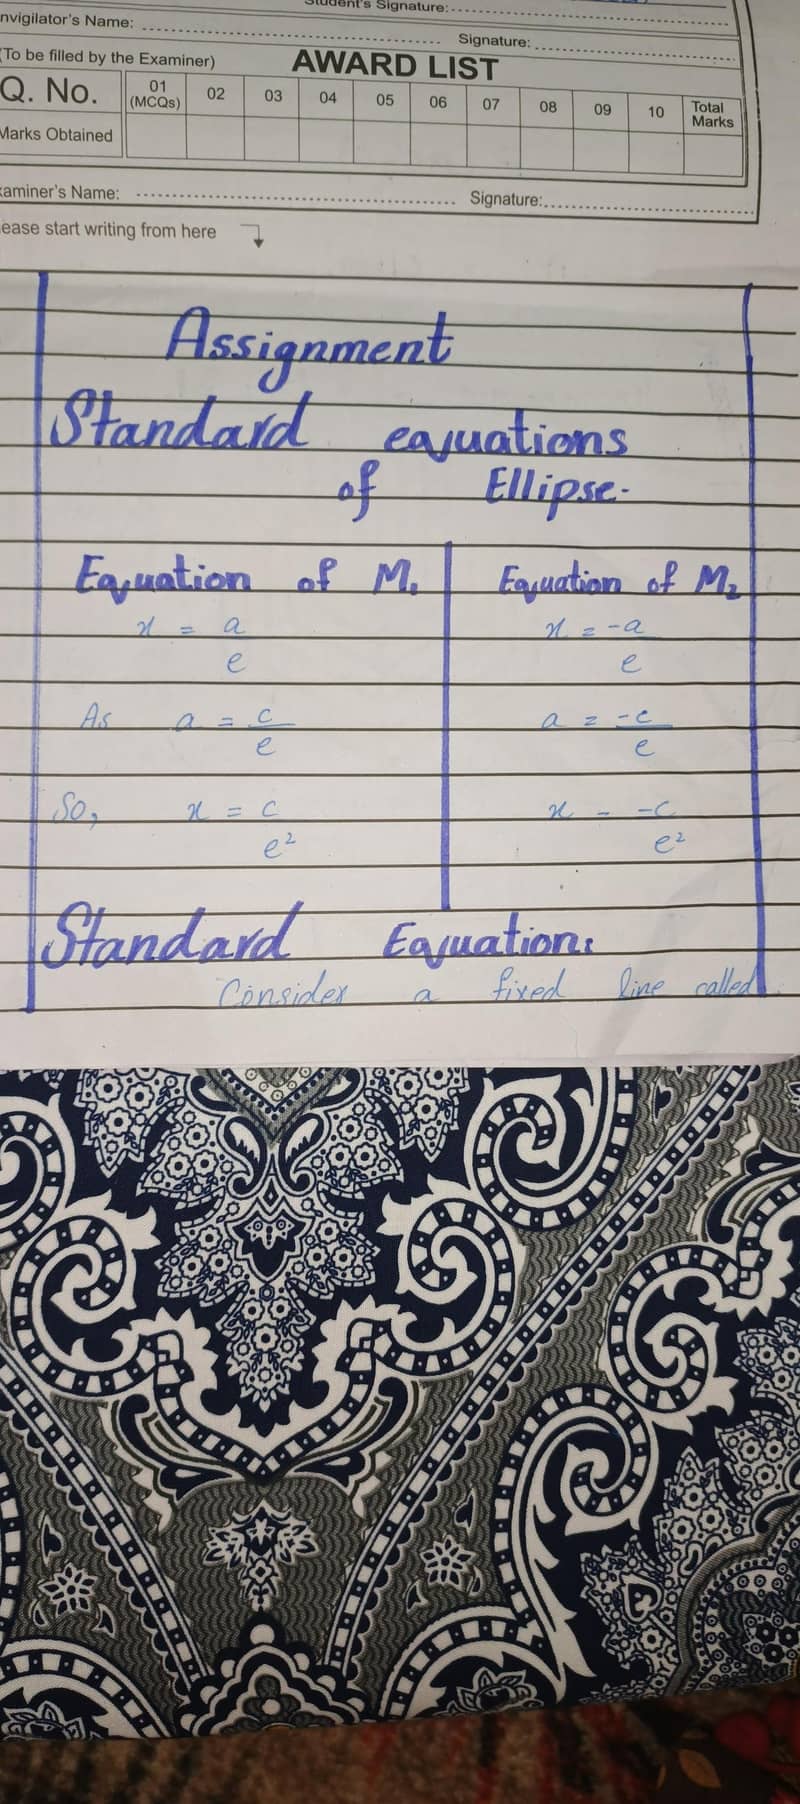 Student's Signature:
nvigilator's Name: Signature:
(To be filled by the Examiner) AWARD LIST
Q. No. 01 (MCQs) 02 03 04 05 06 07 08 09 10 Total Marks
Marks Obtained
xaminer's Name: Signature:
ease start writing from here
Assignment
Standard equations
of Ellipse.
Equation of M₁ Equation of M₂
x = a/e x = -a/e
As a = c/e a = -c/e
So, x = c/e² x - -c/e²
Standard Equation:
Consider a fixed line called